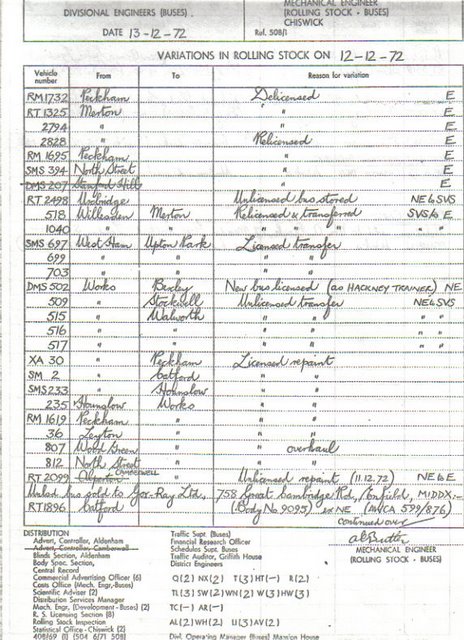 DIVISIONAL ENGINEERS (BUSES)
DATE 13-12-72
MECHANICAL ENGINEER
(ROLLING STOCK - BUSES)
CHISWICK
Ref. 508/1
VARIATIONS IN ROLLING STOCK ON 12-12-72
Vehicle number From To Reason for variation
RM1732 Peckham Delicensed E
RT 1325 Merton " E
2794 " " E
2828 " Relicensed E
RM 1695 Peckham " E
SMS 394 North Street " E
DMS 207 Stamford Hill " E
RT 2498 Uxbridge Unlicensed bus stored NE & SVS
518 Willesden Merton Relicensed & transferred SVS to E
1040 " " " " " " "
SMS 697 West Ham Upton Park Licensed transfer
699 " " "
703 " " "
DMS 502 Works Bexley New bus licensed (as HACKNEY TRAINER) NE
509 " Stockwell Unlicensed transfer NE & SVS
515 " Walworth " " "
516 " " " " "
517 " " " " "
XA 30 Peckham Licensed repaint
SM 2 " Catford "
SMS233 " Hounslow "
235 Hounslow Works "
RM 1619 Peckham " "
36 Leyton " "
807 Wood Green " " overhaul
812 North Street " "
RT 2099 Alperton CAMBERWELL Unlicensed repaint (11.12.72) NE to E
bus sold to Gor-Ray Ltd, 758 Great Cambridge Rd, Enfield, MIDDX.
RT1896 Catford (Body No 9095) ex NE (AWCA 599/876)
continued over
DISTRIBUTION
Advert. Controller, Aldenham
Advert. Controller, Camberwell
Blinds Section, Aldenham
Body Spec. Section,
Central Record
Commercial Advertising Officer (6)
Costs Office (Mech. Engr-Buses)
Scientific Adviser (2)
Distribution Services Manager
Mech. Engr. (Development-Buses) (2)
R. S. Licensing Section (8)
Rolling Stock Inspection
Statistical Office - Chiswick (2)
408/69 (1) 504 6/71 508
Traffic Supt. (Buses)
Financial Research Officer
Schedules Supt. Buses
Traffic Auditor, Griffith House
District Engineers
Q(2) NX(2) T(3) HT(-) R(2)
TL(3) SW(2) WN(2) W(3) HW(3)
TC(-) AR(-)
AL(2) WH(2) U(3) AV(2)
Divl. Operating Manager (Buses) Mansion House
MECHANICAL ENGINEER
(ROLLING STOCK - BUSES)